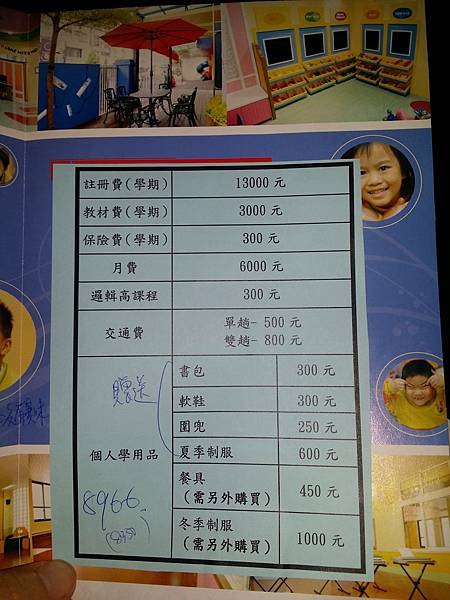 註冊費(學期) 13000 元
教材費(學期) 3000 元
保險費(學期) 300 元
月費 6000 元
邏輯高課程 300 元
交通費 單趟- 500 元
雙趟- 800 元
贈送
個人學用品
8966
書包 300 元
軟鞋 300 元
圍兜 250 元
夏季制服 600 元
餐具
(需另外購買) 450 元
冬季制服
(需另外購買) 1000 元